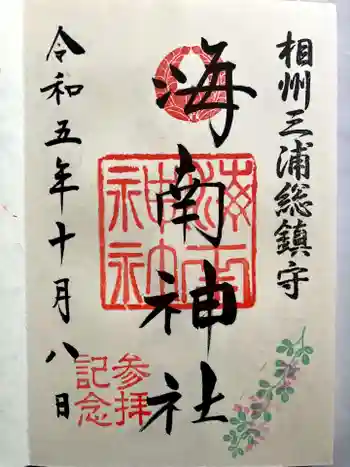 相州三浦総鎮守
海南神社
海南神社
参拝
記念
令和五年十月八日